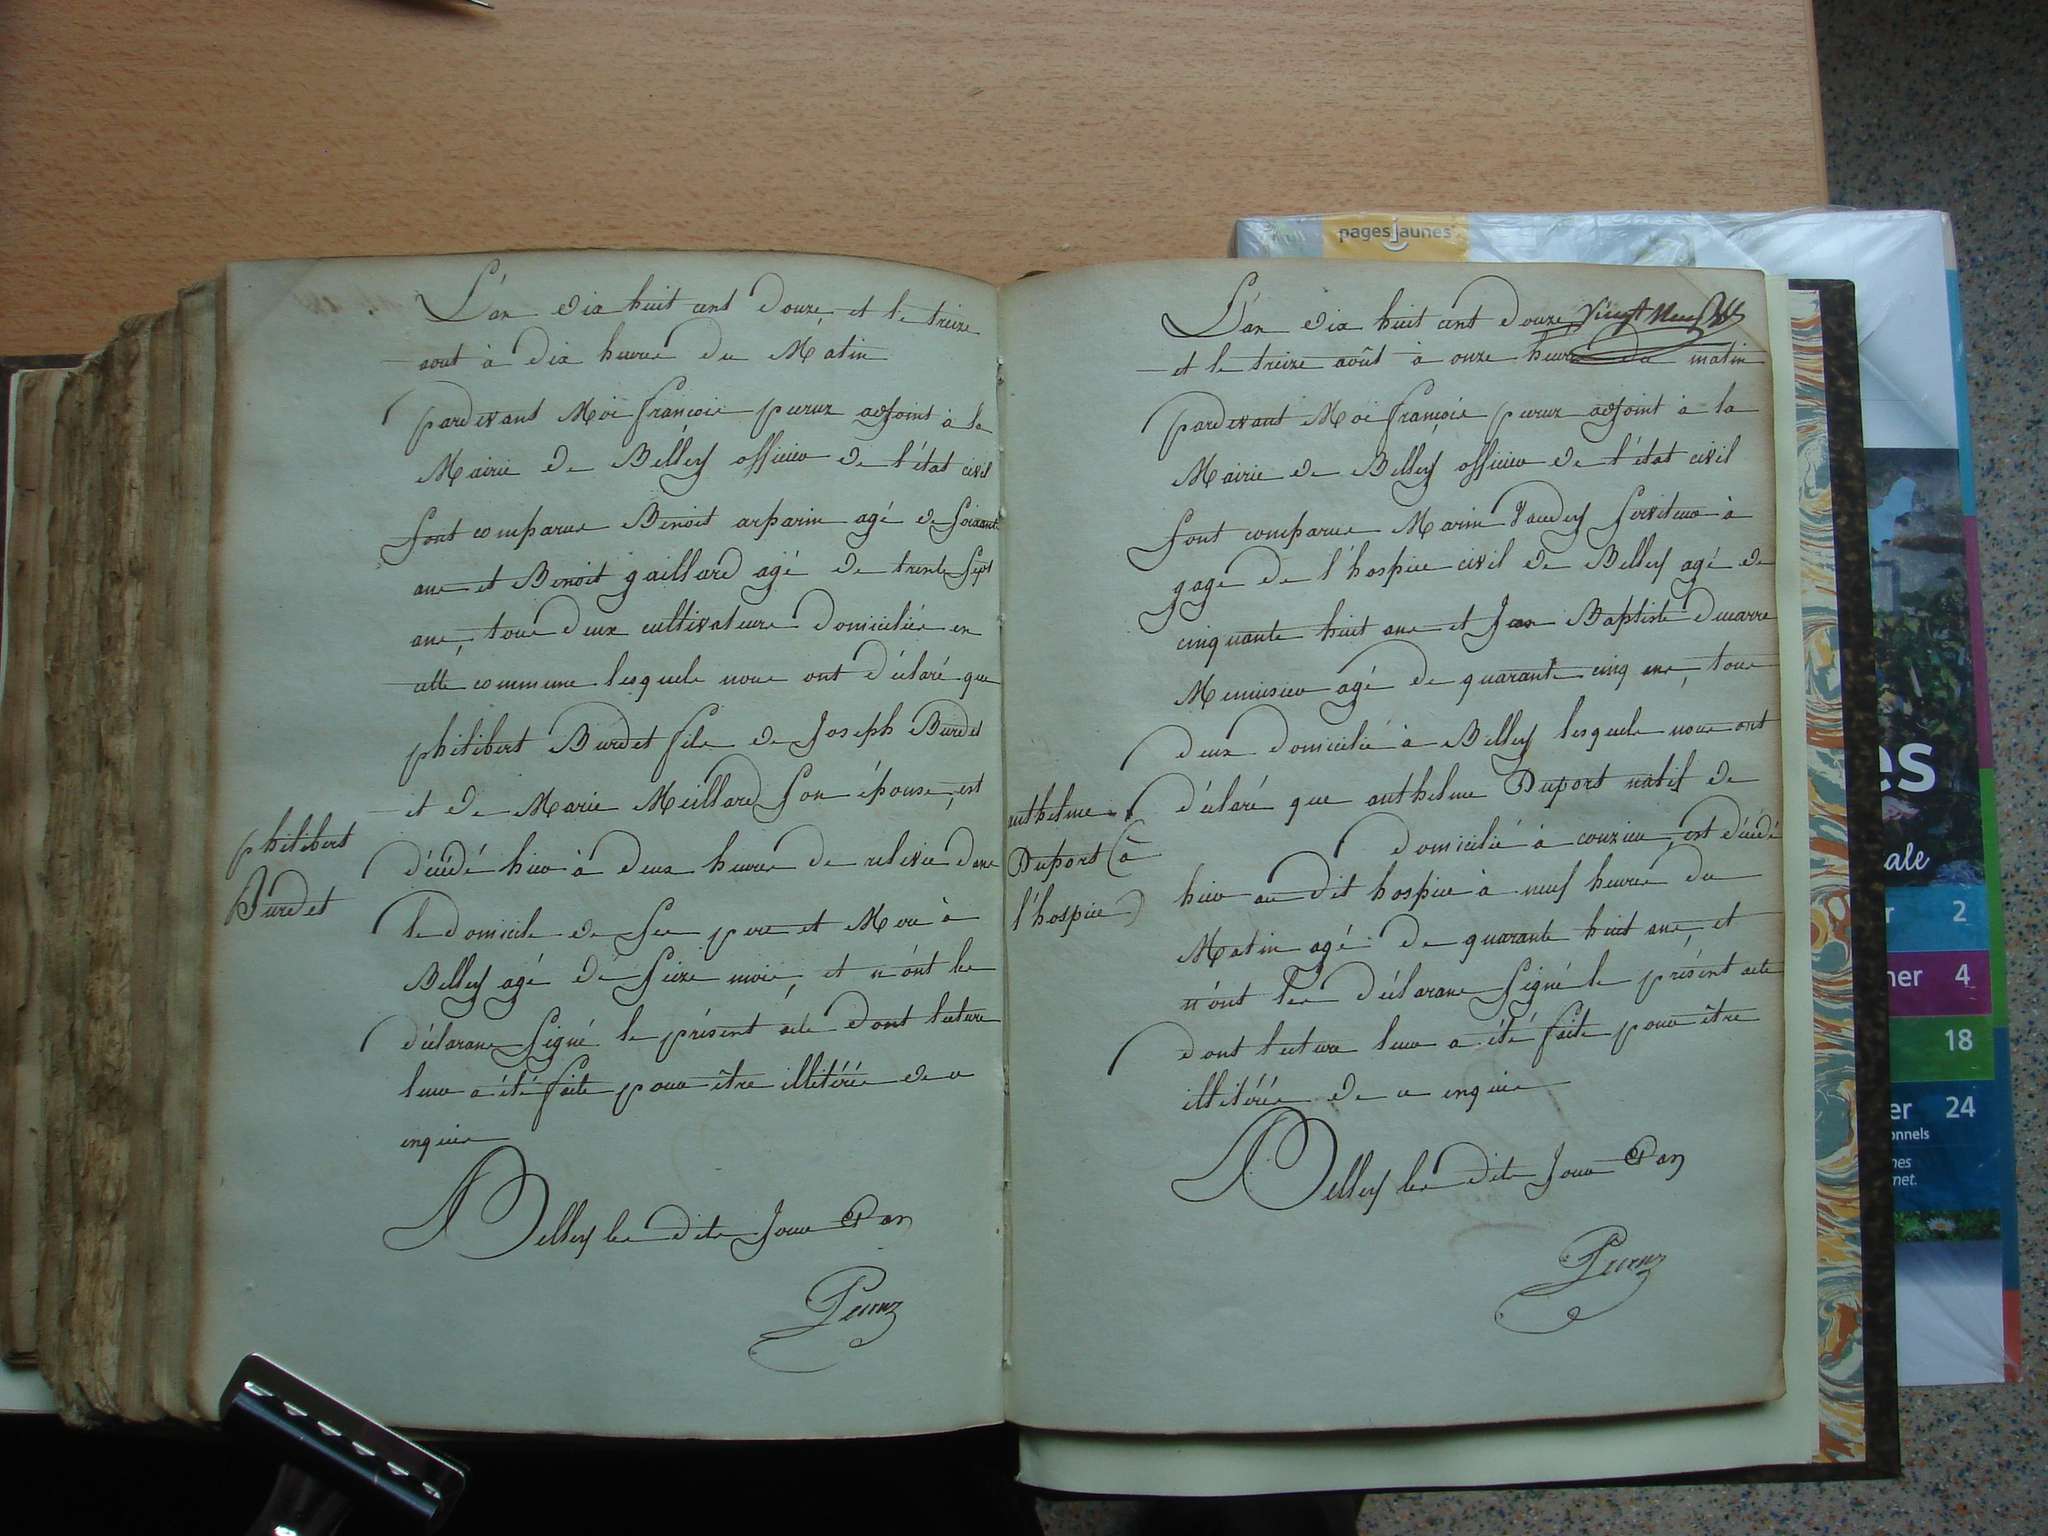 L'an dix huit cent douze et le treize
aout à dix heures du Matin
pardevant Moi françois peruz adjoint à la
Mairie de Belley officier de l'état civil
sont comparus Benoit arparin agé de soixante
ans et Benoit gaillard agé de trente sept
ans, tous deux cultivateurs domiciliés en
cette commune lesquels nous ont déclaré que
philibert Burdet fils de Joseph Burdet
et de Marie Meillard son épouse, est
décédé hier à deux heures de relevée dans
le domicile de ses pere et Mere à
Belley agé de seize mois, et n'ont les
déclarans signé le présent acte dont lecture
leur a été faite pour être illitérés de ce
enquis
A Belley les dits jour & an
Peruz
philibert
Burdet
L'an dix huit cent douze Vingt Neuf
et le treize août à onze heures du matin
pardevant Moi françois peruz adjoint à la
Mairie de Belley officier de l'état civil
sont comparus Marin Vaudey serviteur à
gage de l'hospice civil de Belley agé de
cinquante huit ans et Jean Baptiste Ducarre
Menuisier agé de quarante cinq ans, tous
deux domiciliés à Belley lesquels nous ont
déclaré que anthelme Duport natif de
domicilié à couzieu, est décédé
hier au dit hospice à neuf heures du
Matin agé de quarante huit ans, et
n'ont les déclarans signé le présent acte
dont lecture leur a été faite pour être
illitérés de ce enquis
A Belley les dits jour & an
Peruz
anthelme
Duport (à
l'hospice)
pagesjaunes
es
ale
2
ner 4
18
er 24
onnels
nes
net.